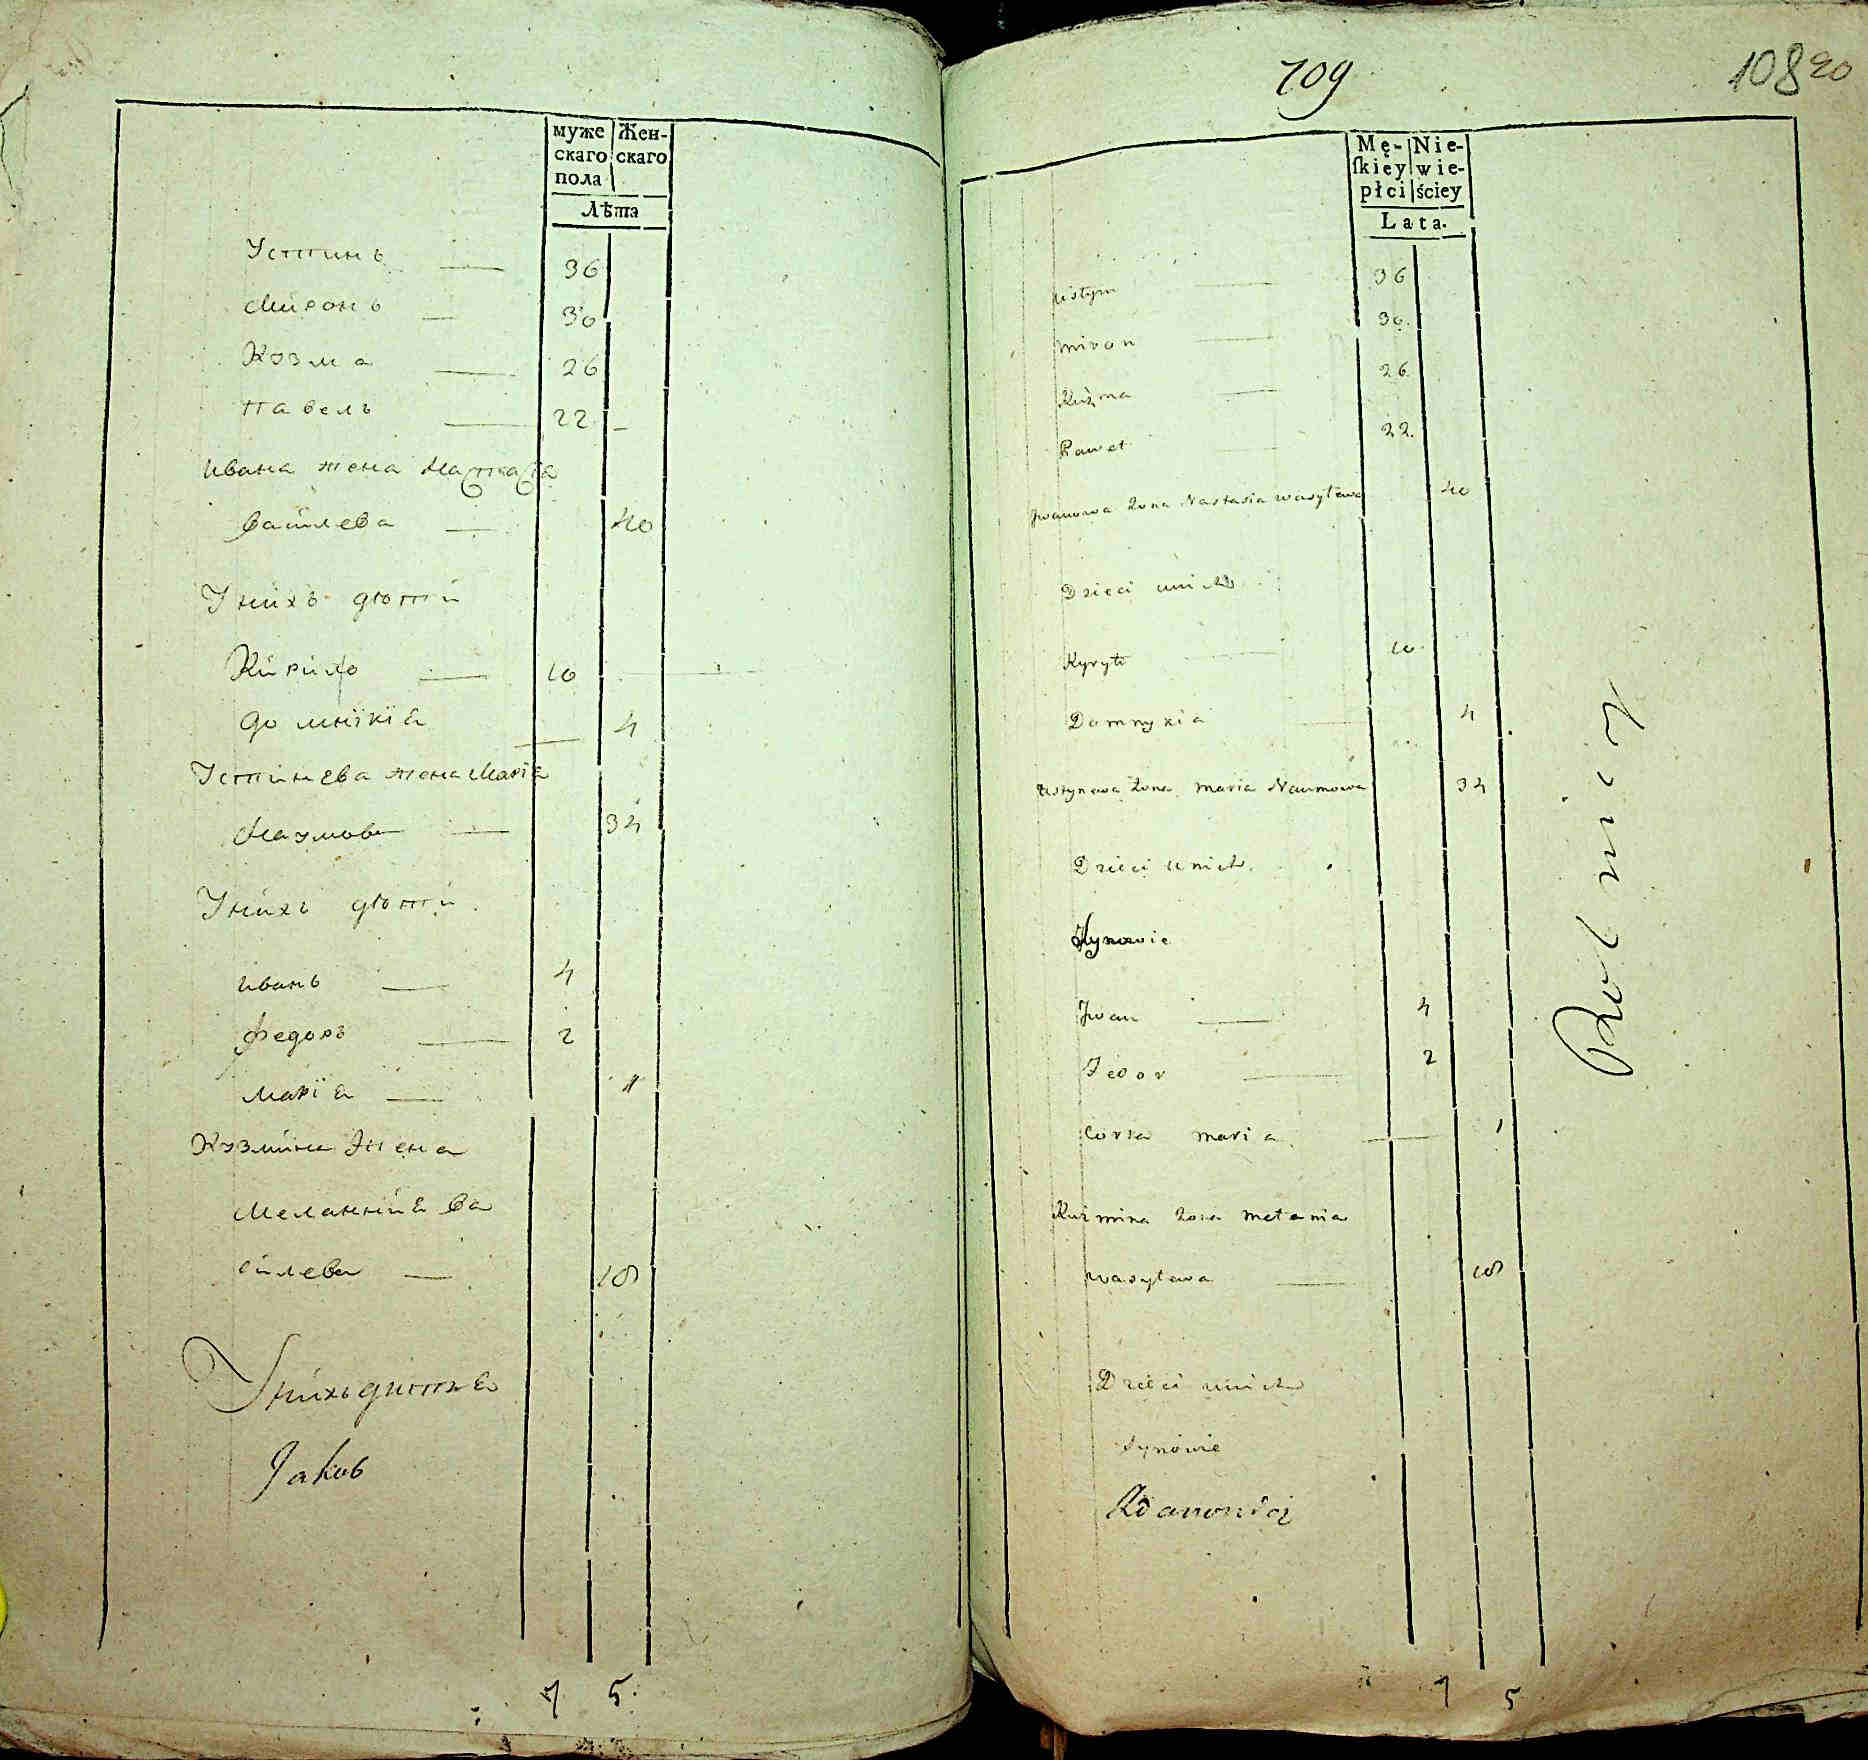 муже Жен-
скаго скаго
пола
Лѣта
Устинъ — 36
Миронъ — 30
Кузма — 26
Павелъ — 22 –
Ивана жена Настасіа
Василева — 40
У нихъ дѣти
Кирило — 10
Домникіа — 4
Устинева жена Маріа
Наумова — 34
У нихъ дѣти
Иванъ — 4
Федоръ — 2
Маріа — 1
Кузмина жена
Меланніа Ва
силева — 18
У нихъ
Jakob
7 5
109
108 20
Mę- Nie-
ſkiey wie-
płci ściey
Lata.
Ustyn — 36
Miron — 30.
Kuźma — 26.
Paweł — 22.
Jwanowa Żona Nastasia wasylewa 40
Dzieci unich
Kyryło — 10
Domnykia — 4
Ustynowa Żona Maria Naumowa 34
Dzieci unich.
Synowie
Jwan — 4
Fedor — 2
Corka maria — 1
Kuzmina Zona Melania
wasylewa — 18
Dzieci unich
Synowie
7 5
Rolnicy